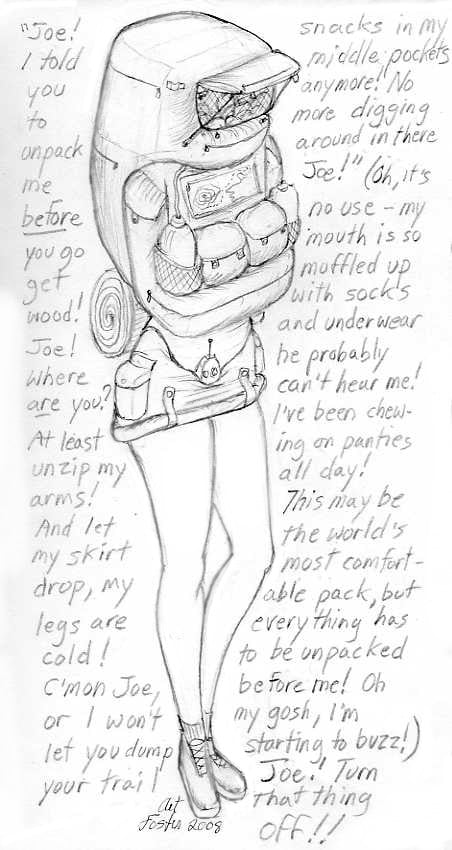 "Joe!
I told
you
to
unpack
me
before
you go
get
wood!
Joe!
Where
are you?
At least
unzip my
arms!
And let
my skirt
drop, my
legs are
cold!
C'mon Joe,
or I won't
let you dump
your trail
snacks in my
middle pockets
anymore! No
more digging
around in there
Joe!" (Oh, it's
no use - my
mouth is so
muffled up
with socks
and underwear
he probably
can't hear me!
I've been chew-
ing on panties
all day!
This may be
the world's
most comfort-
able pack, but
everything has
to be unpacked
before me! Oh
my gosh, I'm
starting to buzz!)
Joe!' Turn
that thing
off!!
Art
Foster 2008